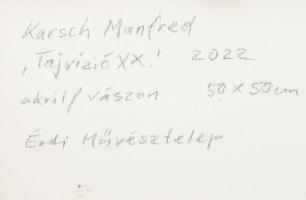 Karsch Manfred
"Tájvízió XX." 2022
akril/vászon 50 x 50 cm
Érdi Művésztelep